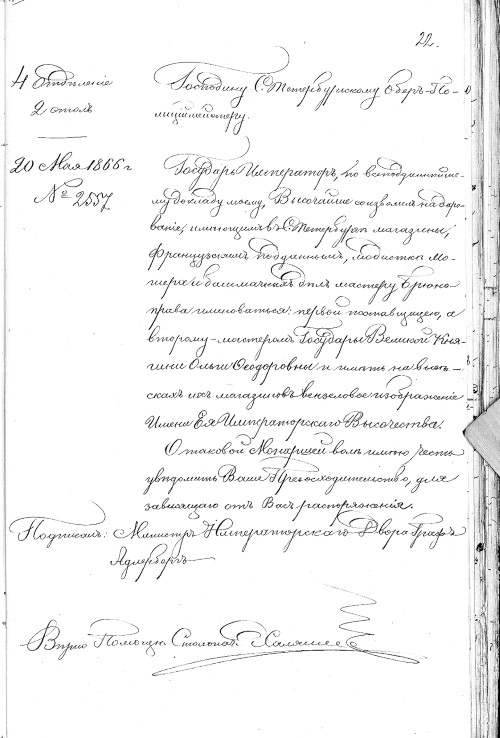 22.
4 Отдѣленіе
2 столъ
20 Мая 1866 г
№ 2557
Господину С. Петербургскому Оберъ-По-
лиціймейстеру.
Государь Императоръ, по всеподданнѣйше-
му докладу моему, Высочайше соизволилъ на даро-
ваніе, имеющимъ въ С. Петербургѣ магазины,
французскимъ подданнымъ, модисткѣ Мо-
и башмачныхъ дѣлъ мастеру
права именоваться: первой поставщицею, а
второму - мастеромъ Государыни Великой Кня-
гини Ольги Ѳеодоровны и имѣть на вывѣ-
скахъ ихъ магазиновъ вензеловое изображеніе
Имени Ея Императорскаго Высочества.
О таковой Монаршей волѣ имѣю честь
увѣдомить Ваше Превосходительство, для
зависящаго отъ Васъ распоряженія.
Подписалъ: Министръ Императорскаго Двора Графъ
Адлербергъ
Вѣрно Помощн. Столонач.